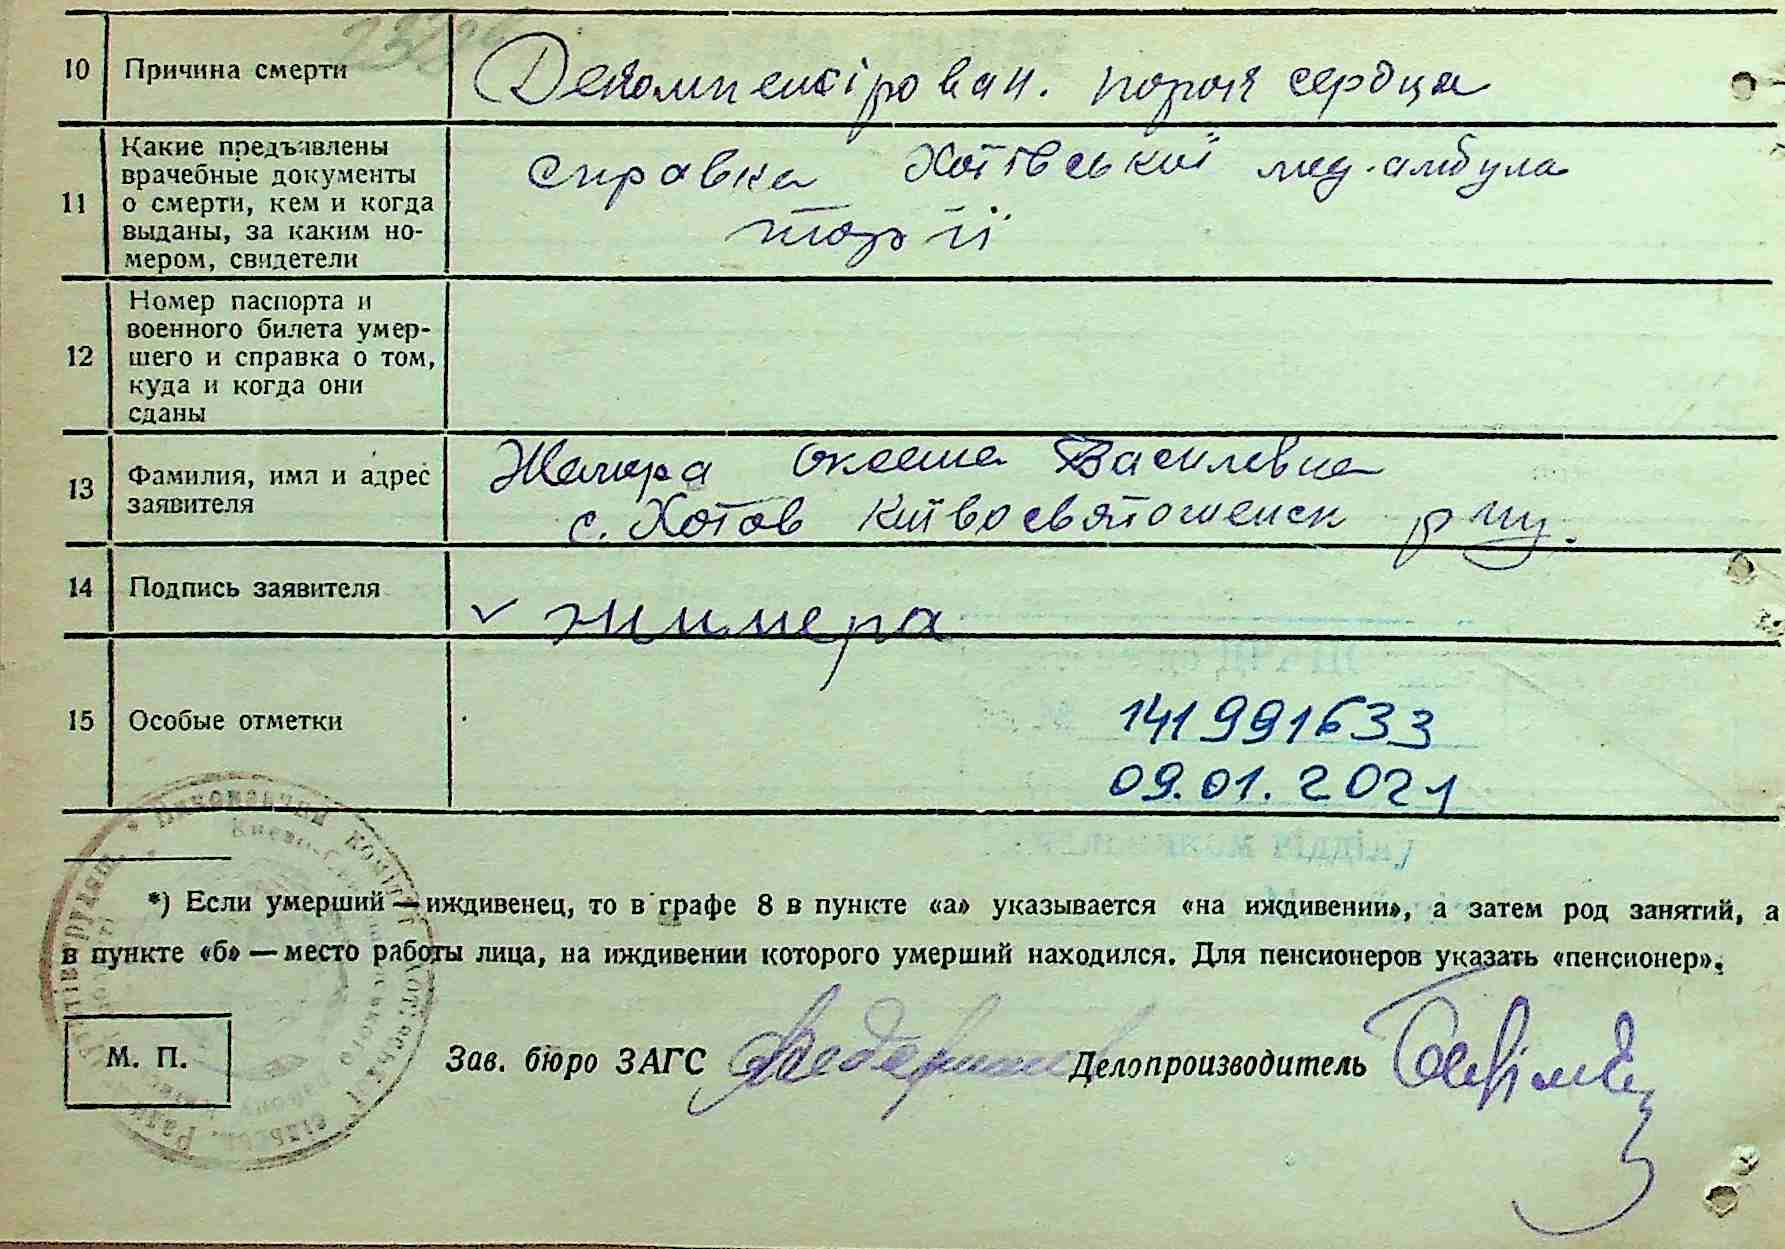 10 Причина смерти
Декомпенсірован. порок сердца
11 Какие предъявлены
врачебные документы
о смерти, кем и когда
выданы, за каким но-
мером, свидетели
справка Хотівської мед. амбула
торії
12 Номер паспорта и
военного билета умер-
шего и справка о том,
куда и когда они
сданы
13 Фамилия, имя и адрес
заявителя
Оксана Василевна
с. Хотов Київосвятошенск р
14 Подпись заявителя
15 Особые отметки
141991633
09.01.2021
*) Если умерший — иждивенец, то в графе 8 в пункте «а» указывается «на иждивении», а затем род занятий, а
в пункте «б» — место работы лица, на иждивении которого умерший находился. Для пенсионеров указать «пенсионер».
М. П.
Зав. бюро ЗАГС Делопроизводитель